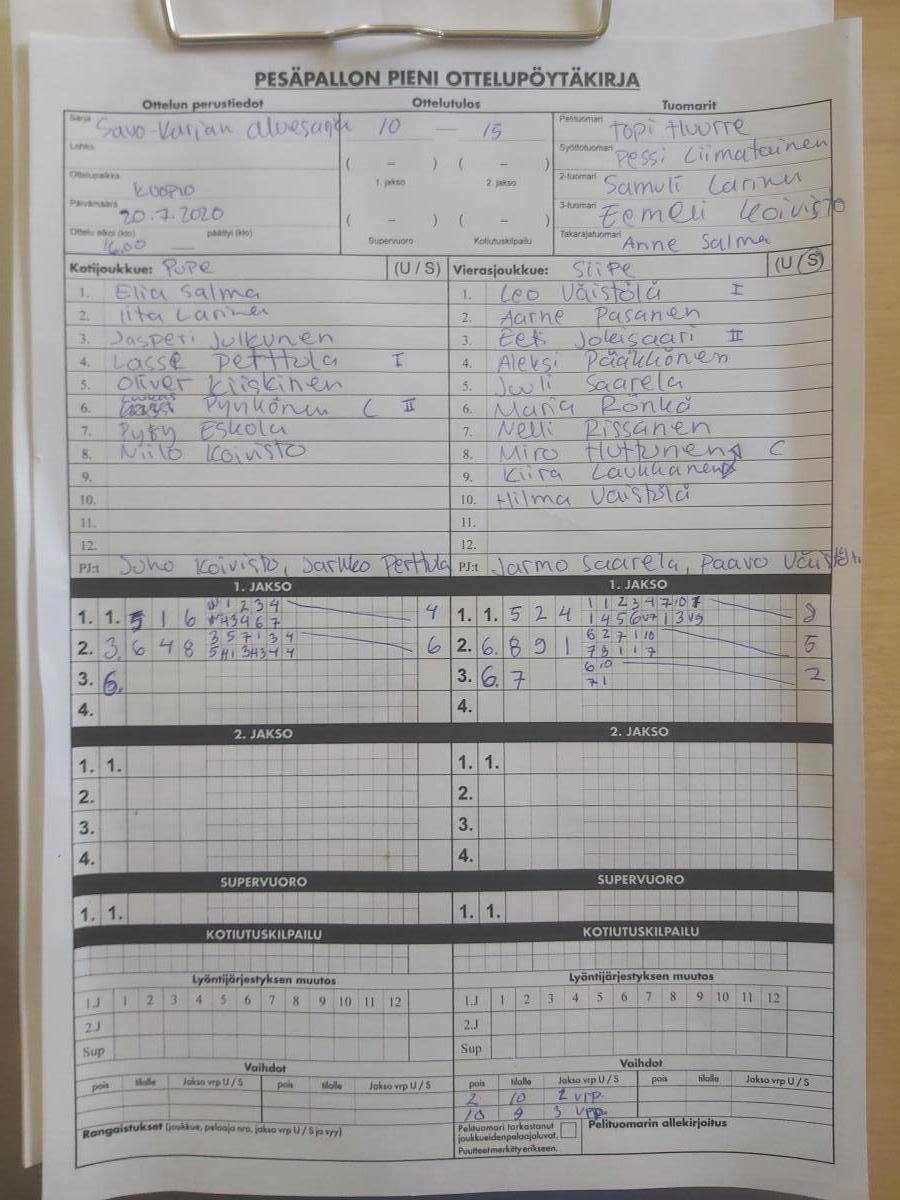 PESÄPALLON PIENI OTTELUPÖYTÄKIRJA
Ottelun perustiedot Ottelutulos Tuomarit
Sarja Savo-Karjan aluesarja 10 — 15 Pelituomari Topi Huurre
Lohko ( – ) ( – ) Syöttötuomari Pessi Liimatainen
1. jakso 2. jakso
Ottelupaikka KUOPIO 2-tuomari Samuli Larinen
Päivämäärä 20.7.2020 ( – ) ( – ) 3-tuomari Eemeli Koivisto
Ottelu alkoi (klo) 16.00 — päättyi (klo) Supervuoro Kotiutuskilpailu Takarajatuomari Anne Salma
Kotijoukkue: PuPe (U / S) Vierasjoukkue: SiiPe (U / S)
1. Elia Salma 1. Leo Väistölä I
2. Iita Larinen 2. Aarne Pasanen
3. Jasperi Julkunen 3. Eeti Jokisaari II
4. Lasse Perttula I 4. Aleksi Pääkkönen
5. Oliver Kiiskinen 5. Juuli Saarela
6. Pynnönen C II 6. Maria Rönkä
7. Pyry Eskola 7. Nelli Rissanen
8. Niilo Koivisto 8. Miro Huttunen C
9. 9. Kiira Laukkanen
10. 10. Hilma Väistölä
11. 11.
12. 12.
PJ:t Juho Koivisto, Jarkko Perttula PJ:t Jarmo Saarela, Paavo Väistölä
1. JAKSO 1. JAKSO
1. 1. 5 1 6 1 2 3 4 4 1. 1. 5 2 4 1 1 2 3 4 7 10 8
4 3 4 6 7 1 4 5 6
2. 3. 6 4 8 3 5 7 1 3 4 6 2. 6. 8 9 1 6 2 7 1 10 5
7 8 1 1 7
3. 6. 3. 6. 7 6 10 2
7 1
4. 4.
2. JAKSO 2. JAKSO
1. 1. 1. 1.
2. 2.
3. 3.
4. 4.
SUPERVUORO SUPERVUORO
1. 1. 1. 1.
KOTIUTUSKILPAILU KOTIUTUSKILPAILU
Lyöntijärjestyksen muutos Lyöntijärjestyksen muutos
1.J 1 2 3 4 5 6 7 8 9 10 11 12 1.J 1 2 3 4 5 6 7 8 9 10 11 12
2.J 2.J
Sup Sup
Vaihdot Vaihdot
pois tilalle Jakso vrp U / S pois tilalle Jakso vrp U / S pois tilalle Jakso vrp U / S pois tilalle Jakso vrp U / S
2 10 2 VIP
10 9 3
Rangaistukset (joukkue, pelaaja nro, jakso vrp U / S ja syy) Pelituomari tarkastanut Pelituomarin allekirjoitus
joukkueiden pelaajaluvat.
Puutteet merkitty erikseen.